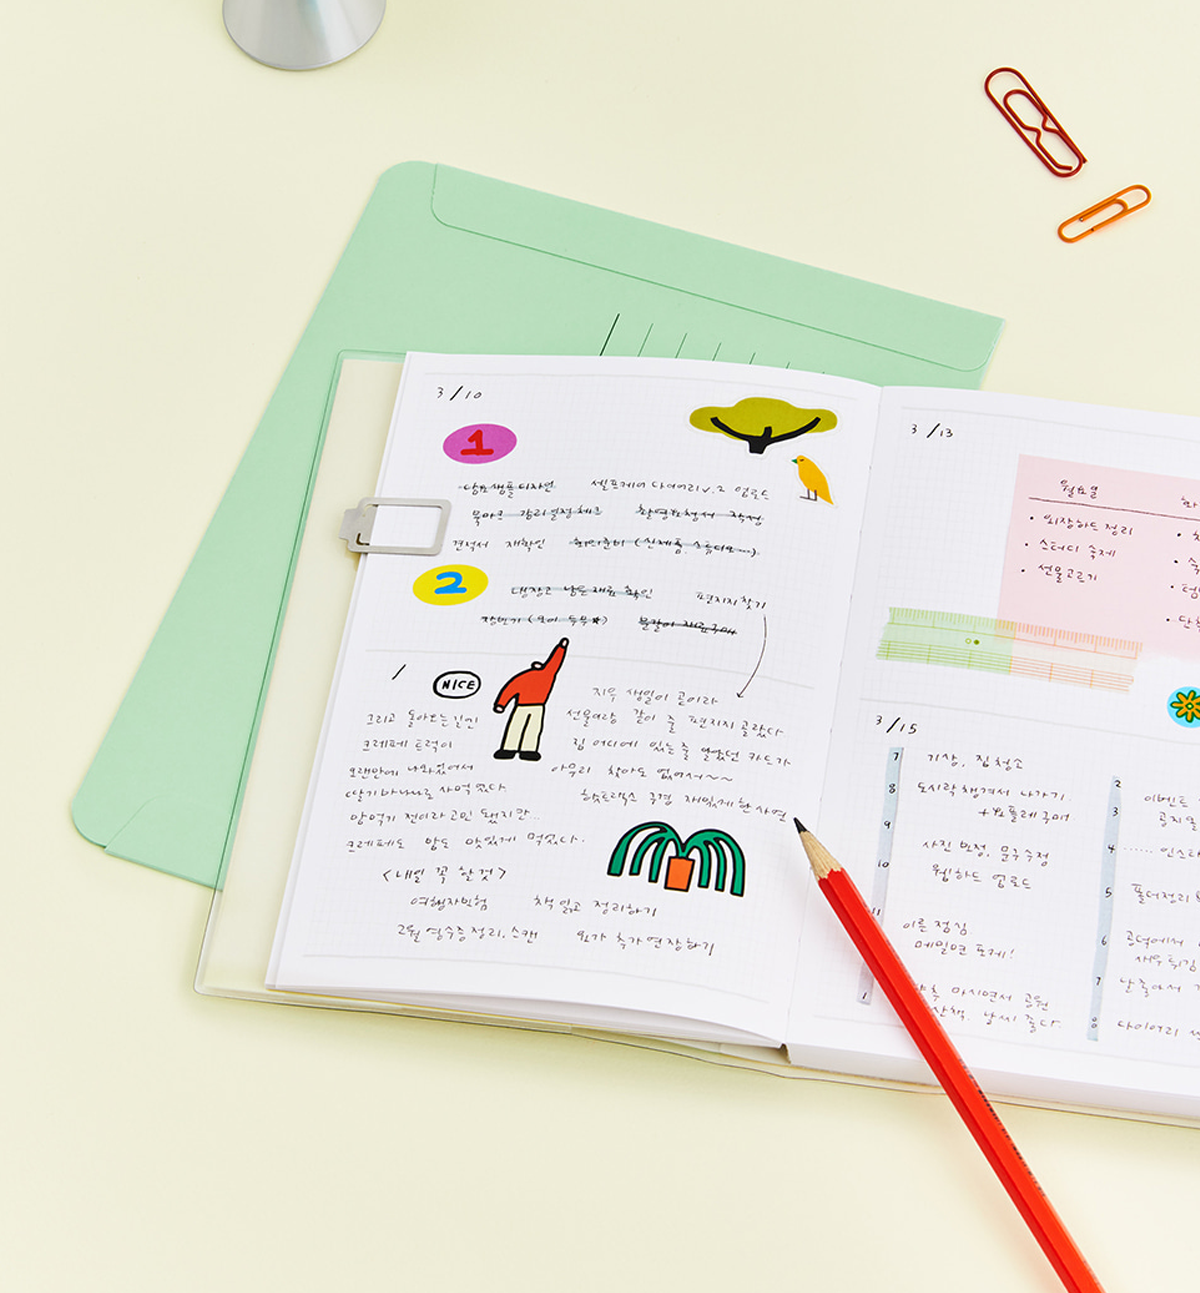 3/10
1
셀프케어 다이어리 v.2 업로드
북마크 감리일정체크 촬영요청서 작성
견적서 재확인 회의준비 (신제품, 스튜디오...)
2
냉장고 남은재료 확인 편지지찾기
장보기 (오이, 두부★)
NICE
지우 생일이 곧이라
선물이랑 같이 줄 편지지 골랐다
집 어디에 있는줄 알았던 카드가
아무리 찾아도 없어서~~
핫트랙스 구경 재밌게한사연
그리고 돌아오는길엔
크레페 트럭이
오랜만에 나와있어서
딸기바나나로 사먹었다.
밥먹기 전이라고민 됐지만..
크레페도 밥도 맛있게 먹었다.
<내일 꼭 할것>
여행자보험 책 읽고 정리하기
2월 영수증정리, 스캔 요가 추가연장하기
3/13
월요일
• 외장하드 정리
• 스터디 숙제
• 선물고르기
3/15
7 기상, 집청소
8 도시락챙겨서 나가기.
+요플레구매.
9
사진 보정, 문구수정
10 웹하드 업로드
11
이른 점심
메밀면 포케!
1
마시면서 공원
산책. 날씨 좋다.
2
이벤트
3
공지
4 ...... 인스타
5 폴더정리
6 공덕에서
새우튀김
7
8 다이어리